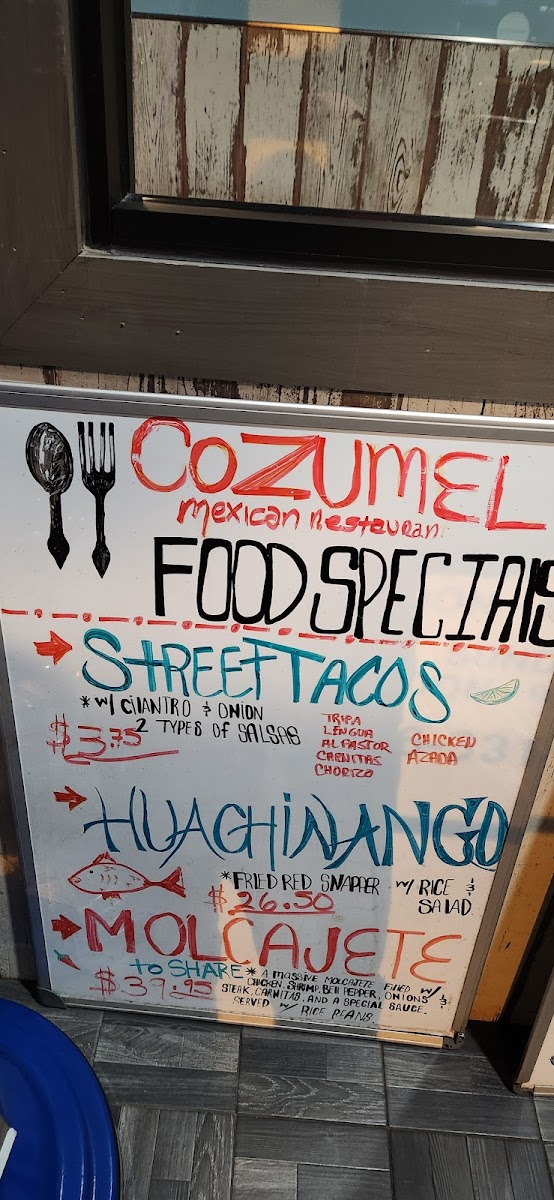 COZUMEL
mexican Restauran
FOOD SPECIALS
STREET TACOS
* W/ CILANTRO & ONION
2 TYPES OF SALSAS
$3.75
TRIPA
LENGUA
AL PASTOR
CARNITAS
CHORIZO
CHICKEN
AZADA
HUACHINANGO
*FRIED RED SNAPPER W/ RICE &
SALAD
$26.50
MOLCAJETE
TO SHARE
$39.95
* A MASSIVE MOLCAJETE FILLED W/
CHICKEN, SHRIMP, BELL PEPPER, ONIONS &
STEAK, CARNITAS, AND A SPECIAL SAUCE.
SERVED W/ RICE BEANS